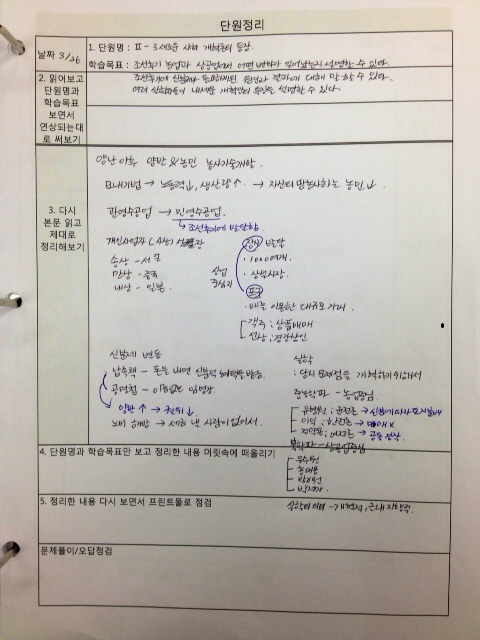 단원정리
날짜 3/26
1. 단원명 : Ⅱ-3 새로운 사회 개혁론의 등장
학습목표 : 조선후기 농업과 상공업에서 어떤 변화가 일어났는지 설명할 수 있다.
조선후기에 신분제가 동요하게된 원인과 결과에 대해 말할 수 있다.
여러 실학자들이 내세운 개혁안의 특징을 설명할 수 있다.
2. 읽어보고
단원명과
학습목표
보면서
연상되는대
로 써보기
3. 다시
본문 읽고
제대로
정리해보기
양난 이후 양반&농민 농사기술개발.
모내기법 → 노동력↓, 생산량↑ → 자신의 땅농사하는 농민↓.
관영수공업 → 민영수공업.
→ 조선후기에 발달함
개인사업자 (사상) 성장
송상 -
만상 - 중국
내상 - 일본
상업
중심지
장시 발달
· 1000여개.
· 상설시장.
포구
· 배를 이용한 대규모 거래.
객주 ; 상품매매
선상 ; 경강상인
신분제 변동
납속책 - 돈을 내면 신분적 혜택을
공명첩 - 이름없는 임명장
양반↑ → 권위↓
노비 해방 → 세금 낼 사람이 없어서.
실학
: 당시 문제점을 개혁하기위해서
중농학파 - 농업중심
유형원 ; 균전론 → 신분에 따라 토지분배
이익 ; 한전론 → 매매 x
정약용 ; 여전론 → 공동 경작.
북학파 - 상공업중심
유수원
홍대용
박지원
박제가.
4. 단원명과 학습목표만 보고 정리한 내용 머릿속에 떠올리기
5. 정리한 내용 다시 보면서 프린트물로 점검
실학의 의의 - 개혁적, 근대 지향적.
문제풀이/오답점검